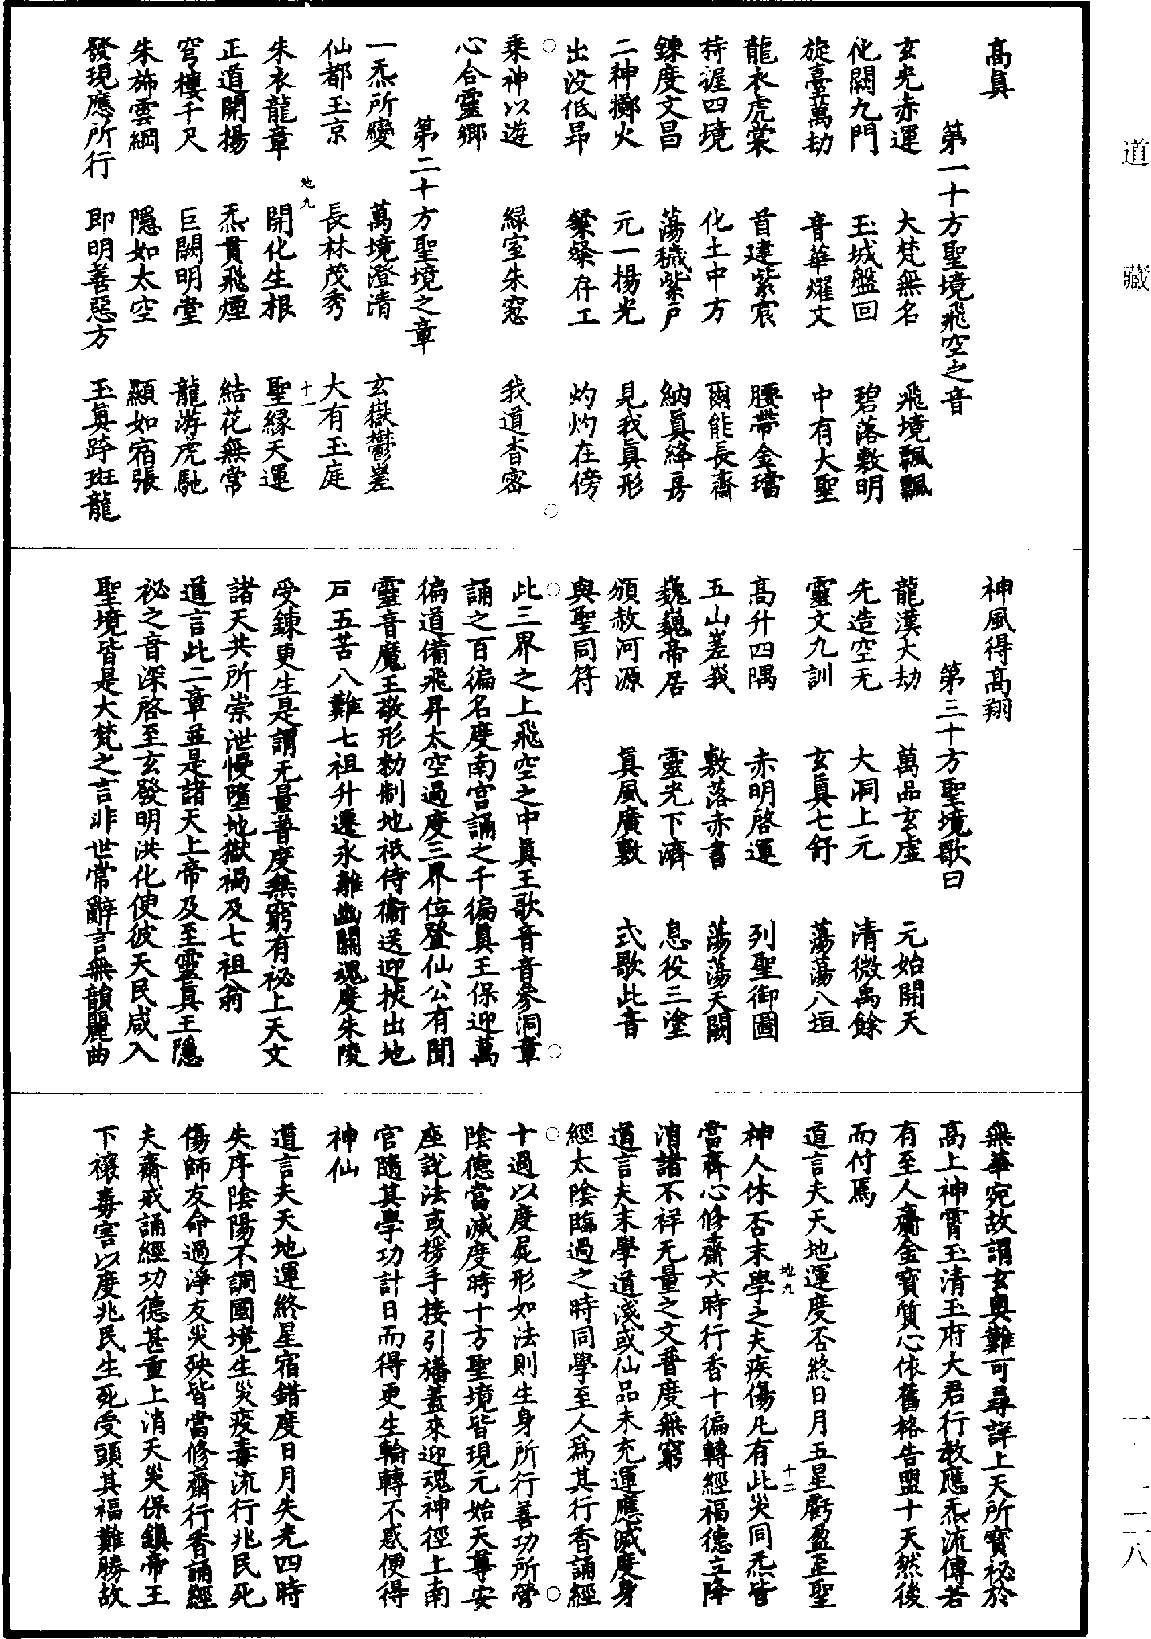 道藏
高眞
第一十方聖境飛空之音
玄光赤運 大梵無名 飛境飄飄
化闢九門 玉城盤回 碧落敷明
旋臺萬劫 音華耀文 中有大聖
龍衣虎裳 首建紫宸 腰帶金璫
持握四境 化土中方 爾能長齋
鍊度文昌 蕩穢紫戶 納眞絳房
二神擲火 元一揚光 見我眞形
出没低昂 粲粲存工 灼灼在傍
乘神以遊 綠室朱窓 我道杳密
心合靈鄉
第二十方聖境之章
一炁所變 萬境澄清 玄嶽欝差
仙都玉京 長林茂秀 大有玉庭
地九 十一
朱衣龍章 開化生根 聖緣天運
正道開揚 炁貫飛煙 結花無常
穹樓千尺 巨闕明堂 龍游虎馳
朱旆雲綱 隱如太空 顯如宿張
發現應所行 即明善惡方 玉眞跨斑龍
神風得高翔
第三十方聖境歌曰
龍漢大劫 萬品玄虛 元始開天
先造空无 大洞上元 清微禹餘
靈文九訓 玄眞七舒 蕩蕩八垣
高升四隅 赤明啓運 列聖御圖
五山差峩 敷落赤書 蕩蕩天闕
巍巍帝居 靈光下濟 息役三塗
頒赦河源 眞風廣敷 式歌此音
與聖同符
此三界之上飛空之中眞王歌音音參洞章
誦之百徧名度南宮誦之千徧眞王保迎萬
徧道備飛昇太空過度三界位登仙公有聞
靈音魔王敬形勑制地祇侍衞送迎拔出地
戶五苦八難七祖升遷永離幽關魂度朱陵
受鍊更生是謂无量普度無窮有祕上天文
諸天共所崇泄慢墮地獄禍及七祖翁
道言此二章並是諸天上帝及至靈眞王隱
祕之音深啓至玄發明洪化使彼天民咸入
聖境皆是大梵之言非世常辭言無韻麗曲
無華宛故謂玄奧難可尋詳上天所寶祕於
高上神霄玉清玉府大君行教應炁流傳若
有至人齎金寶質心依舊格告盟十天然後
而付焉
道言夫天地運度否終日月五星虧盈至聖
地九 十二
神人休否末學之夫疾傷凡有此災同炁皆
當齋心修齋六時行香十徧轉經福德立降
消諸不祥无量之文普度無窮
道言夫末學道淺或仙品未充運應滅度身
經太陰臨過之時同學至人爲其行香誦經
十過以度屍形如法則生身所行善功所營
陰德當滅度時十方聖境皆現元始天尊安
座說法或揮手接引旛蓋來迎魂神徑上南
官隨其學功計日而得更生輪轉不感便得
神仙
道言夫天地運終星宿錯度日月失光四時
失序陰陽不調國境生災疫毒流行兆民死
傷師友命過淨友災殃皆當修齋行香誦經
夫齋戒誦經功德甚重上消天災保鎮帝王
下禳毒害以度兆民生死受頭其福難勝故
一一二八